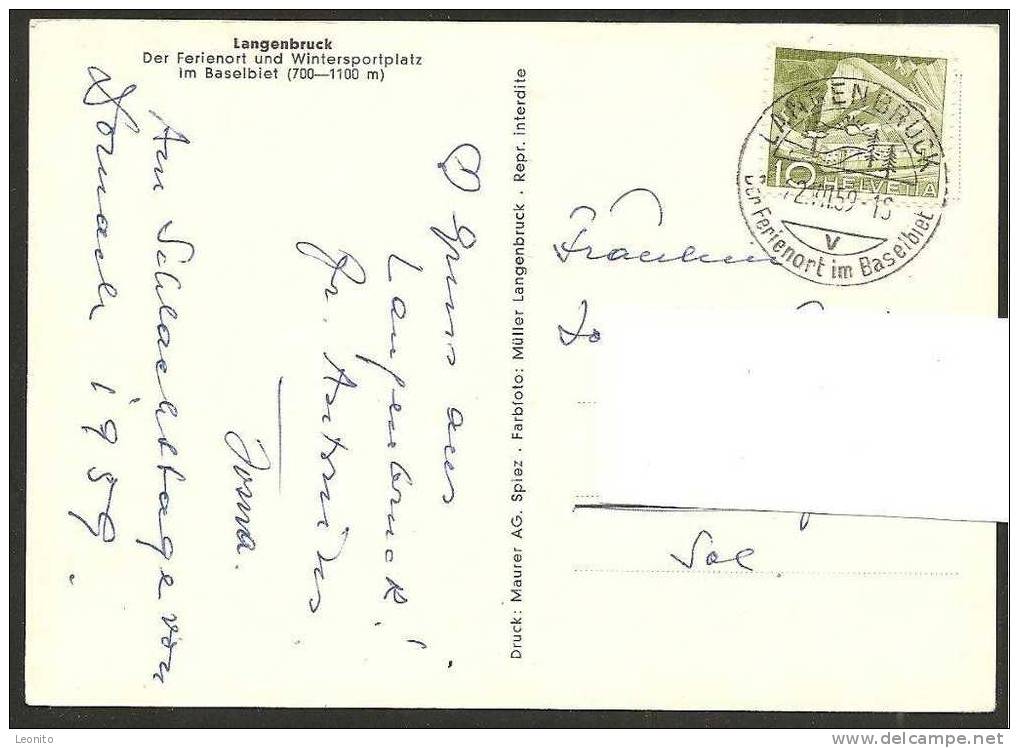 Langenbruck
Der Ferienort und Wintersportplatz
im Baselbiet (700—1100 m)
Gruss aus
Langenbruck!
Fr. Antonius
Am Schlachttage von
Dornach 1959
Druck: Maurer AG. Spiez · Farbfoto: Müller Langenbruck · Repr. interdite
10 HELVETIA
LANGENBRUCK
-22.VII.59-18
V
Der Ferienort im Baselbiet
Fräulein
Sol
Leonito
www.delcampe.net